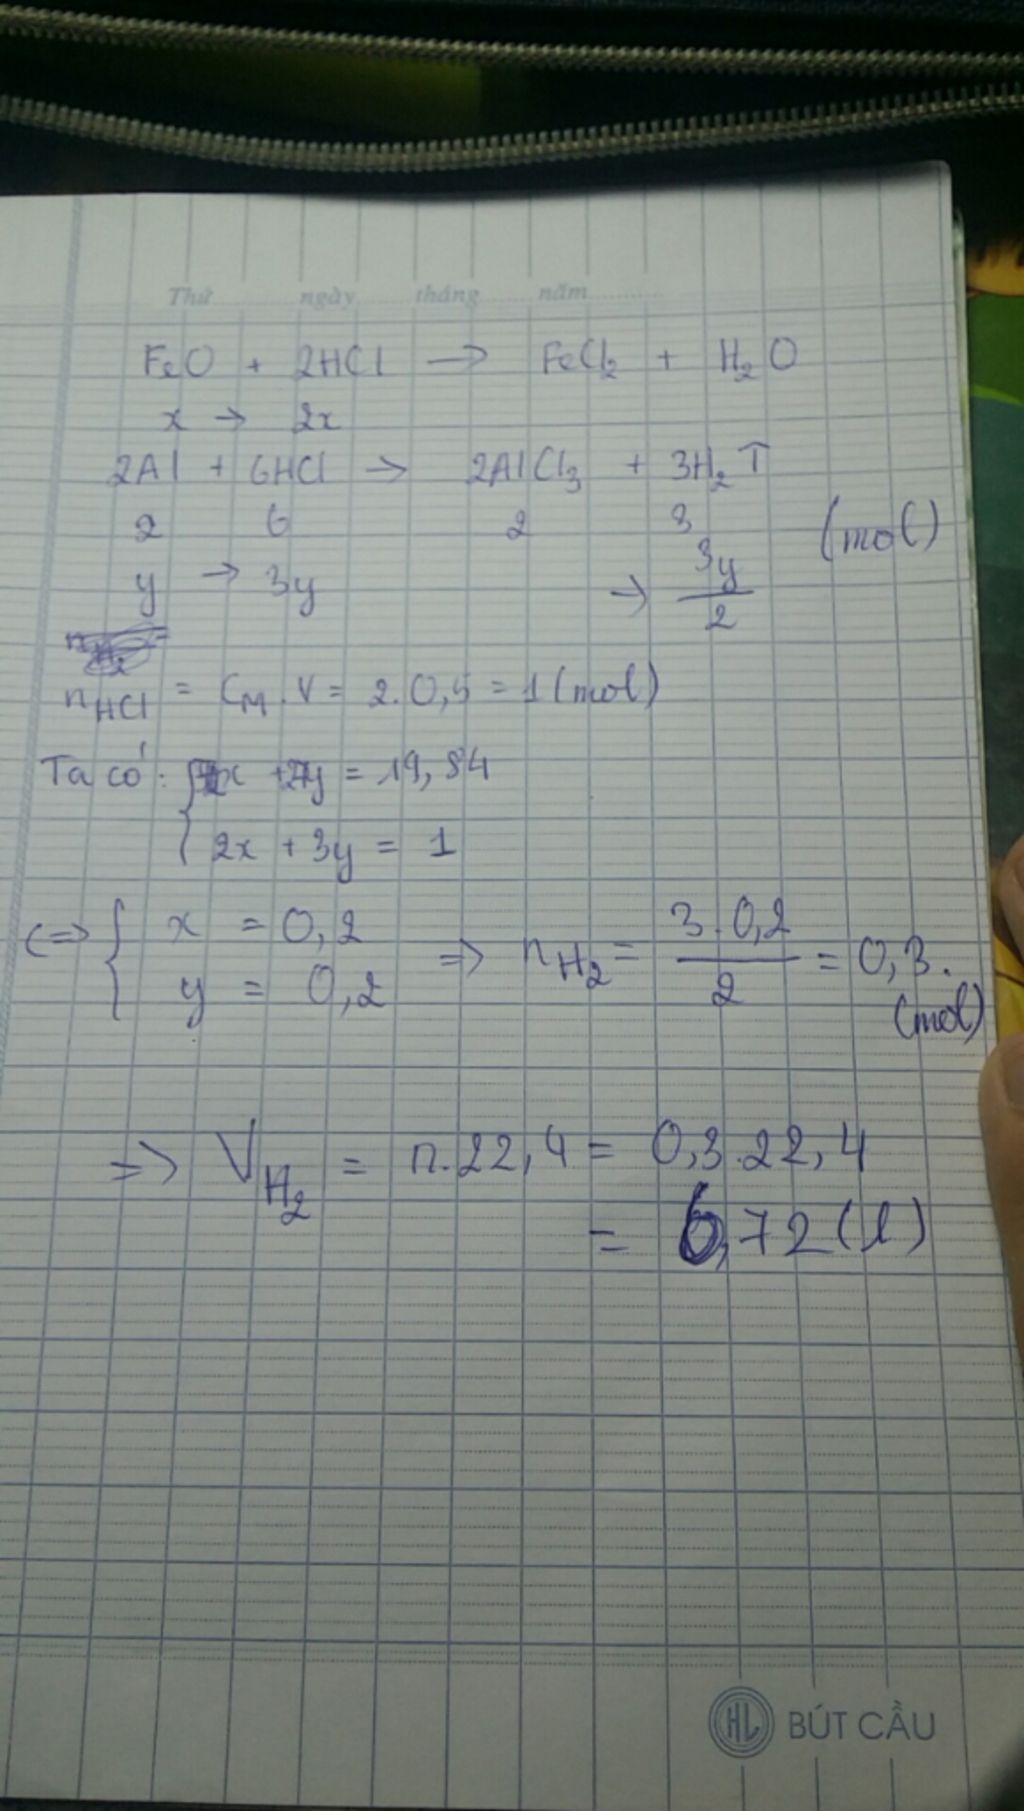 Thứ ngày tháng năm
FeO + 2HCl → FeCl2 + H2O
x → 2x
2Al + 6HCl → 2AlCl3 + 3H2 ↑
2 6 2 3 (mol)
y → 3y → 3y/2
nHCl = CM.V = 2.0,5 = 1 (mol)
Ta có: x + 27y = 19,84
2x + 3y = 1
<=> { x = 0,2
y = 0,2 => nH2 = 3.0,2/2 = 0,3. (mol)
=> VH2 = n.22,4 = 0,3.22,4
= 6,72 (l)
HL BÚT CẦU